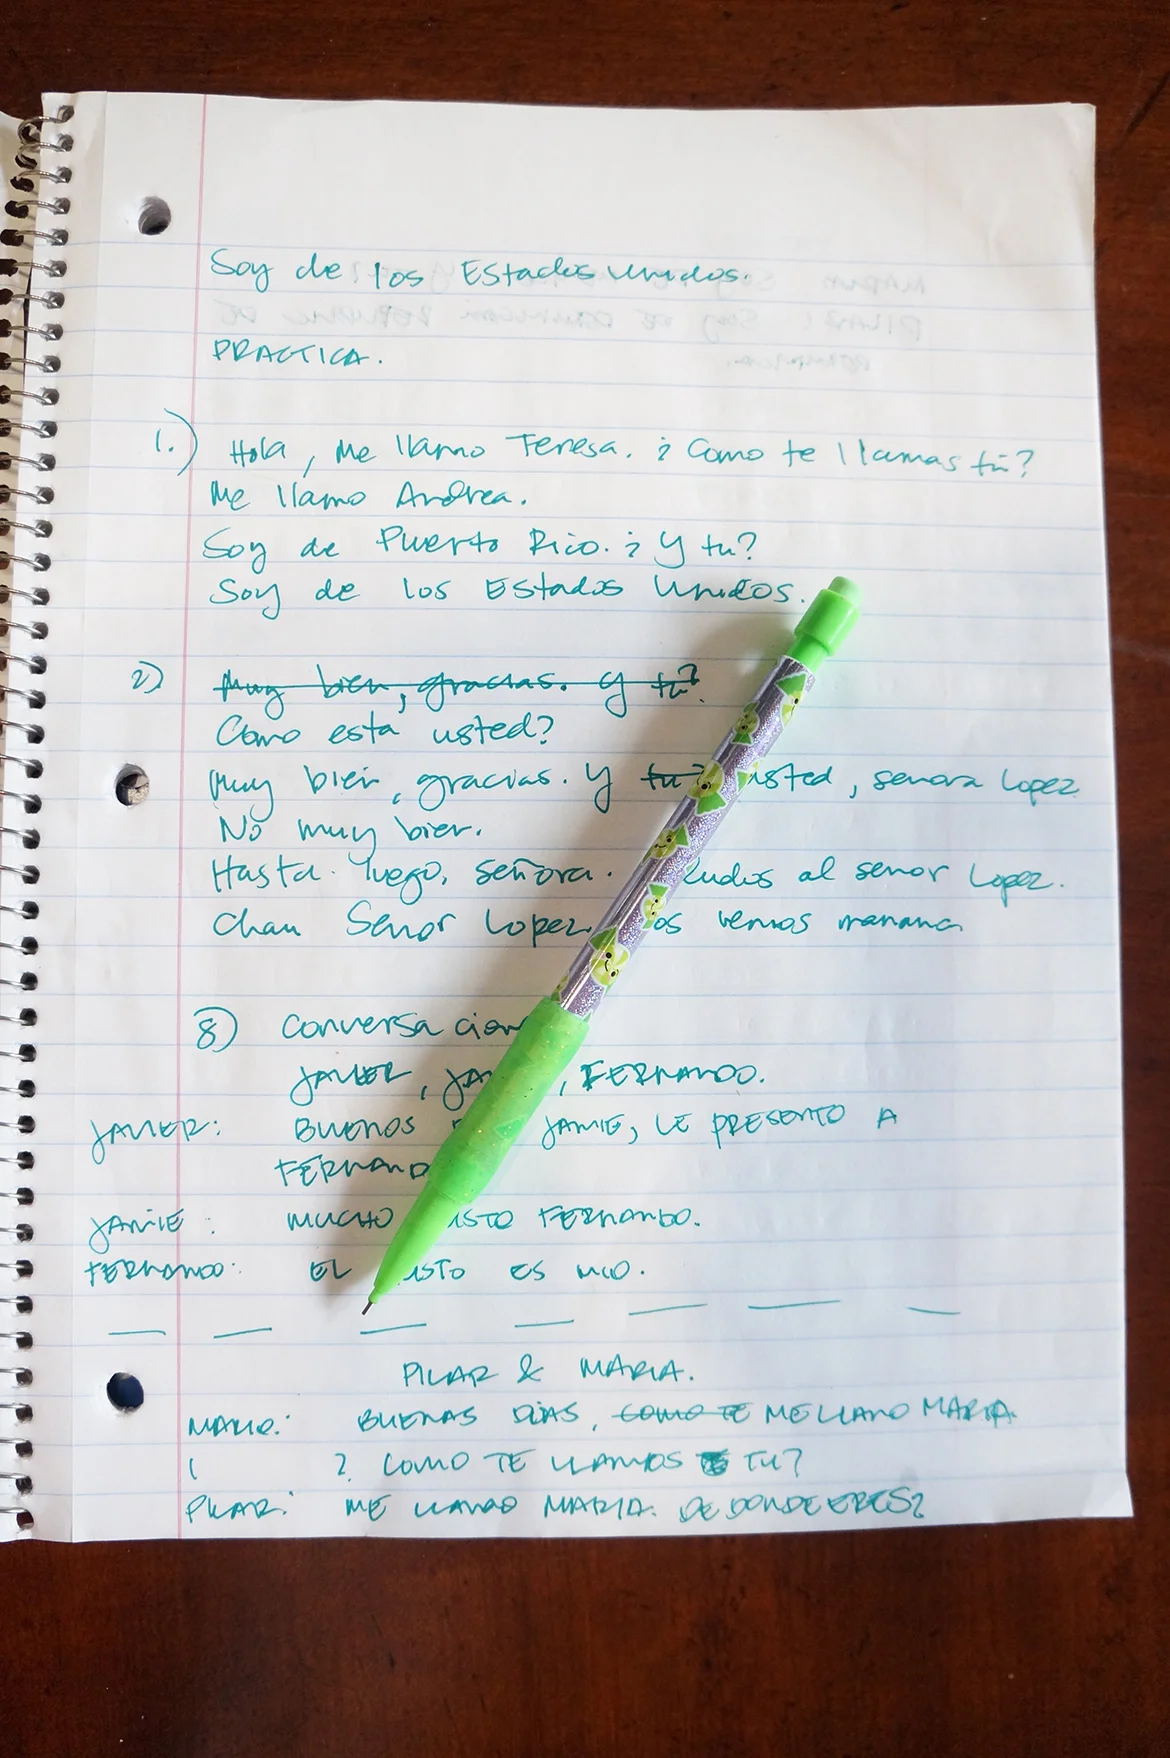 Soy de los Estados Unidos.
PRACTICA.
1.) Hola, Me llamo Teresa. ¿ Como te llamas tú?
Me llamo Andrea.
Soy de Puerto Rico. ¿ Y tu?
Soy de los Estados Unidos.
2) Muy bien, gracias. Y tu?
Como esta usted?
Muy bien, gracias. Y tu? usted, senora Lopez
No muy bien.
Hasta luego, señora. al senor Lopez.
Chau Senor Lopez. vemos manana
8)
JAVIER, FERNANDO.
JAVIER: BUENOS JAMIE, LE PRESENTO A
JAMIE: MUCHO FERNANDO.
FERNANDO: EL ES MIO.
PILAR & MARIA.
BUENAS DIAS, COMO TE ME LLAMO MARIA
? COMO TE LLAMOS TU?
PILAR: ME LLAMO MARIA. DE DONDE ERES?